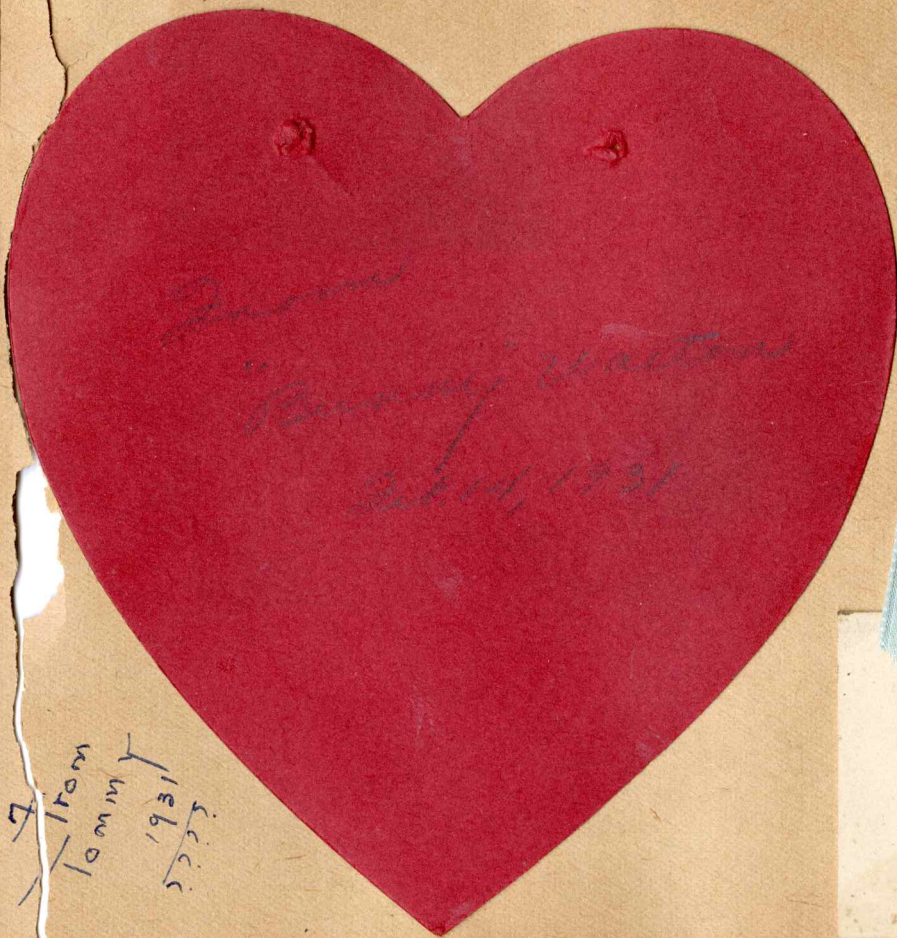 From
"Bunny" Walton
Feb. 14, 1931
From
Tommy
1931
????